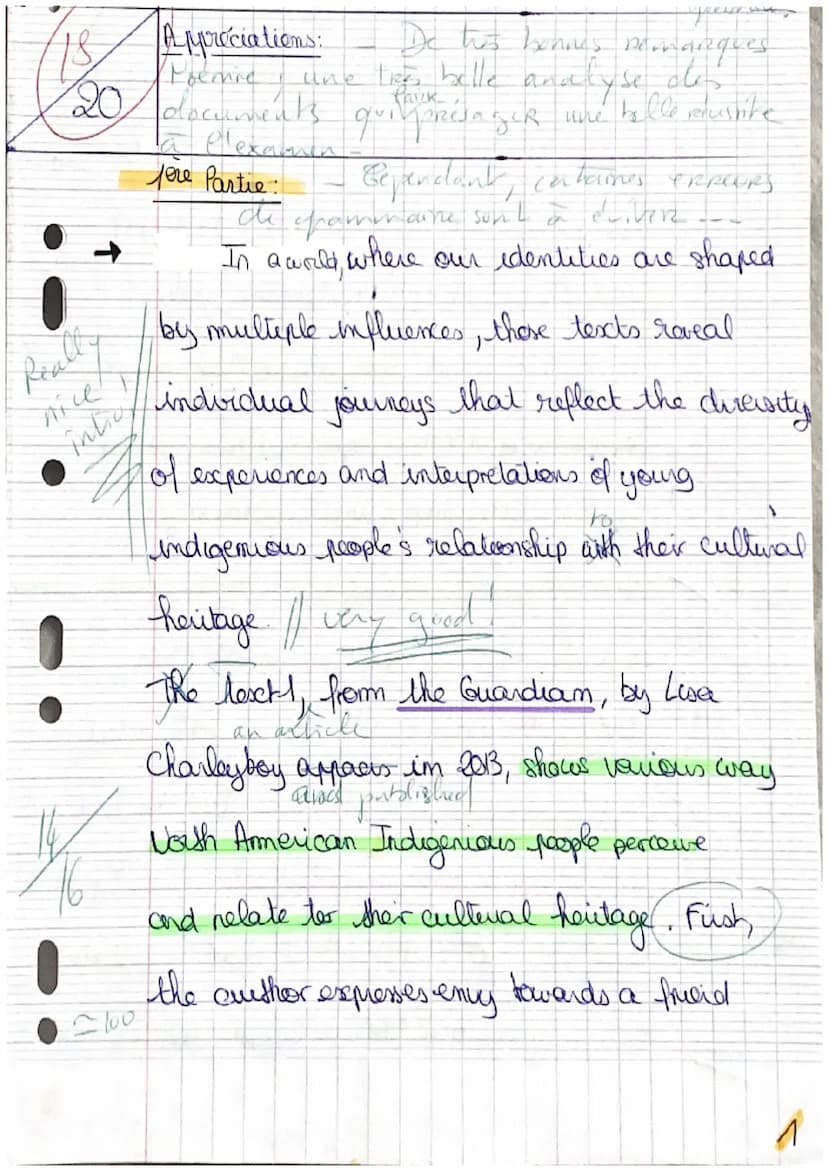 18
20
Appréciations: - De très bonnes remarques
Noémie, une très belle analyse des
documents qui présager une belle réussite
faire
à l'examen -
1ère Partie: - Cependant, certaines erreurs
de grammaire sont à éviter ---
→ In a world, where our identities are shaped
by multiple influences, those texts reveal
Really
nice
intro
individual journeys that reflect the diversity
of experiences and interpretations of young
to
indigenuous people's relationship with their cultural
heritage. // very good!
The text 1, from the Guardian, by Lisa
an article
Charleyboy appears in 2013, shows various way
and published
14
16
North American Indigenious people perceive
and relate to their cultural heritage. First,
the author expresses envy towards a freind
≃ 100
1